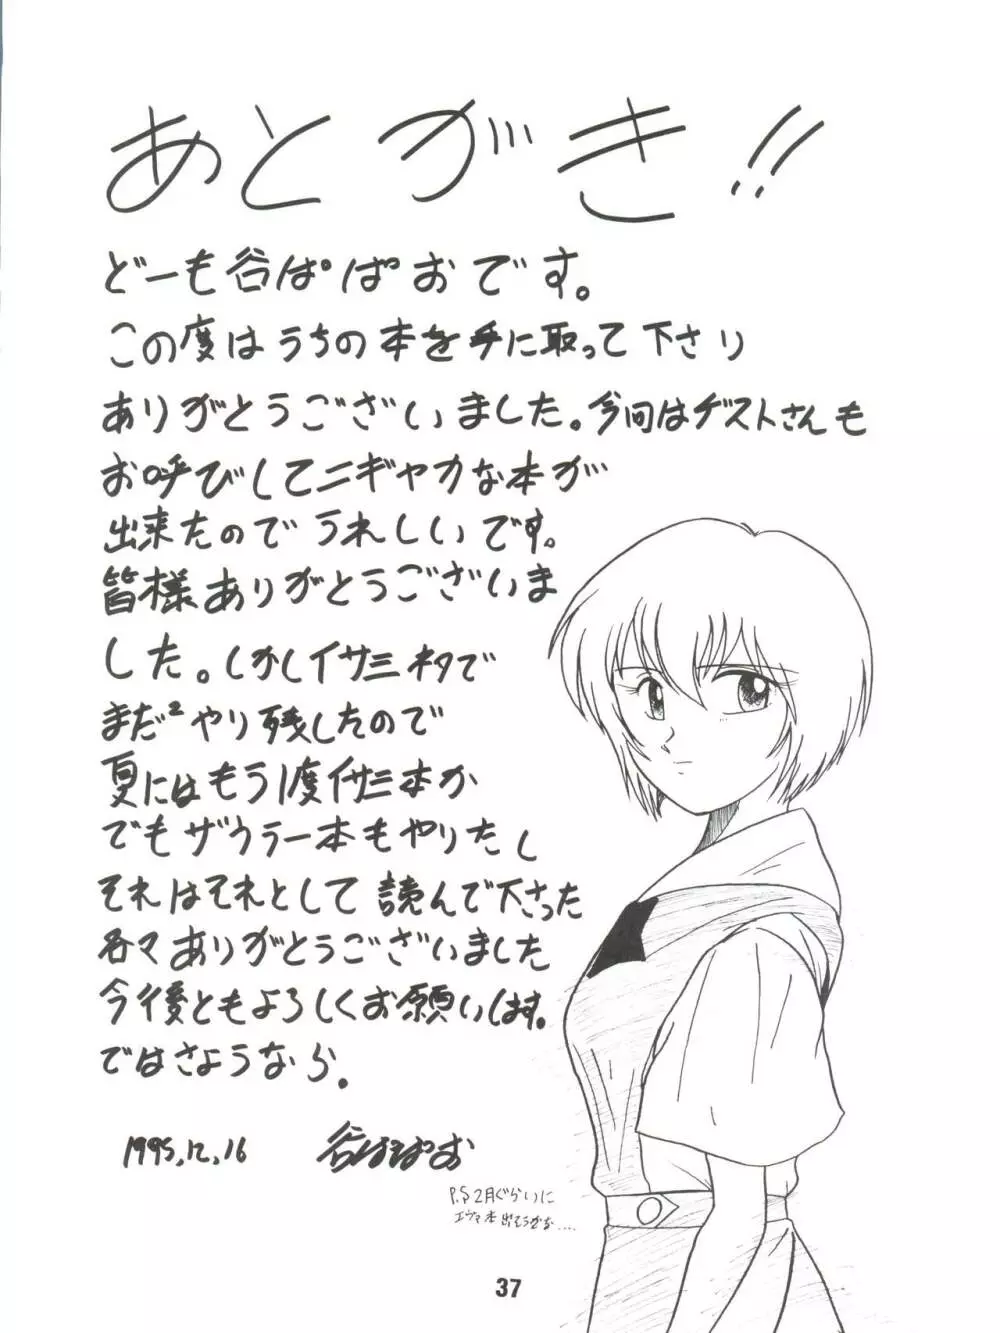 あとがき!!
どーも谷ぱぱおです。
この度はうちの本を手に取って下さり
ありがとうございました。今回はゲストさんも
お呼びしてニギヤカな本が
出来たのでうれしいです。
皆様ありがとうございま
した。しかしイサミネタで
まだ²やり残したので
夏にはもう1度イサミ本か
でもザウラー本もやりたし
それはそれとして読んで下さった
各々ありがとうございました
今後ともよろしくお願いします。
ではさようなら。
1995,12,16 谷ぱぱお
P.S 2月ぐらいに
エヴァ本出そうかな....
37